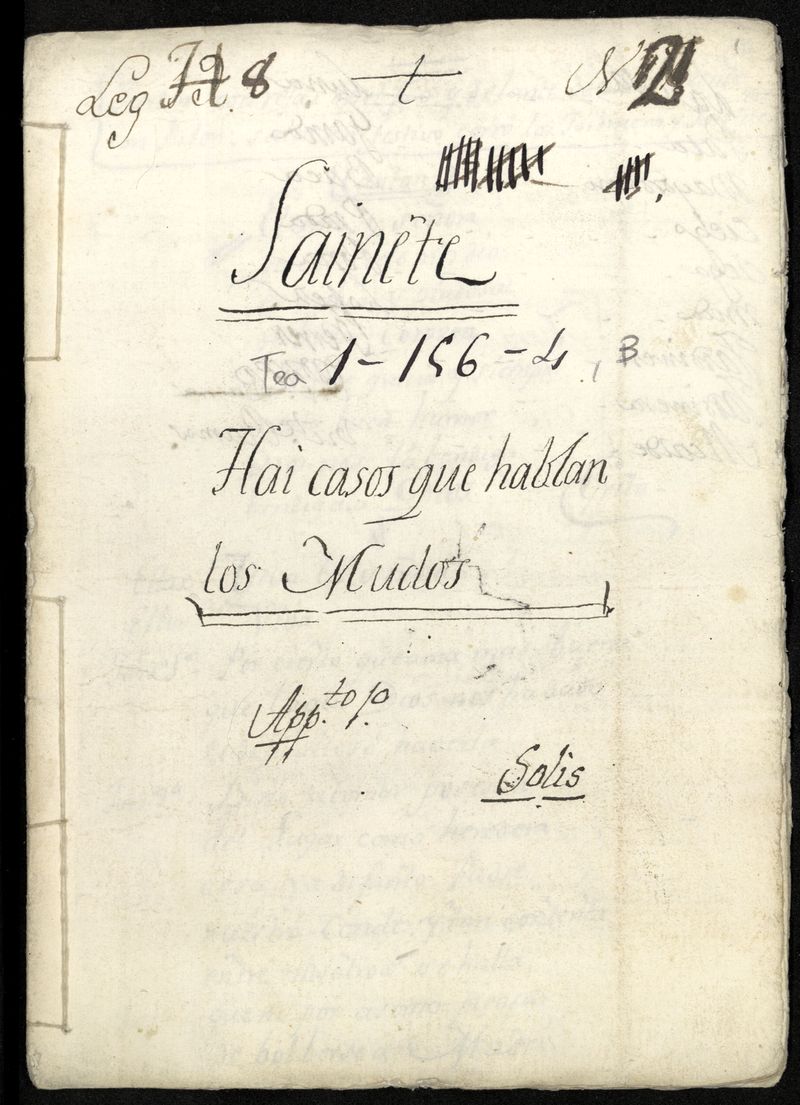 Leg 8
N 2
Sainête
Tea 1-156-4, B
Hai casos que hablan
los Mudos
App.to 1º
Solis